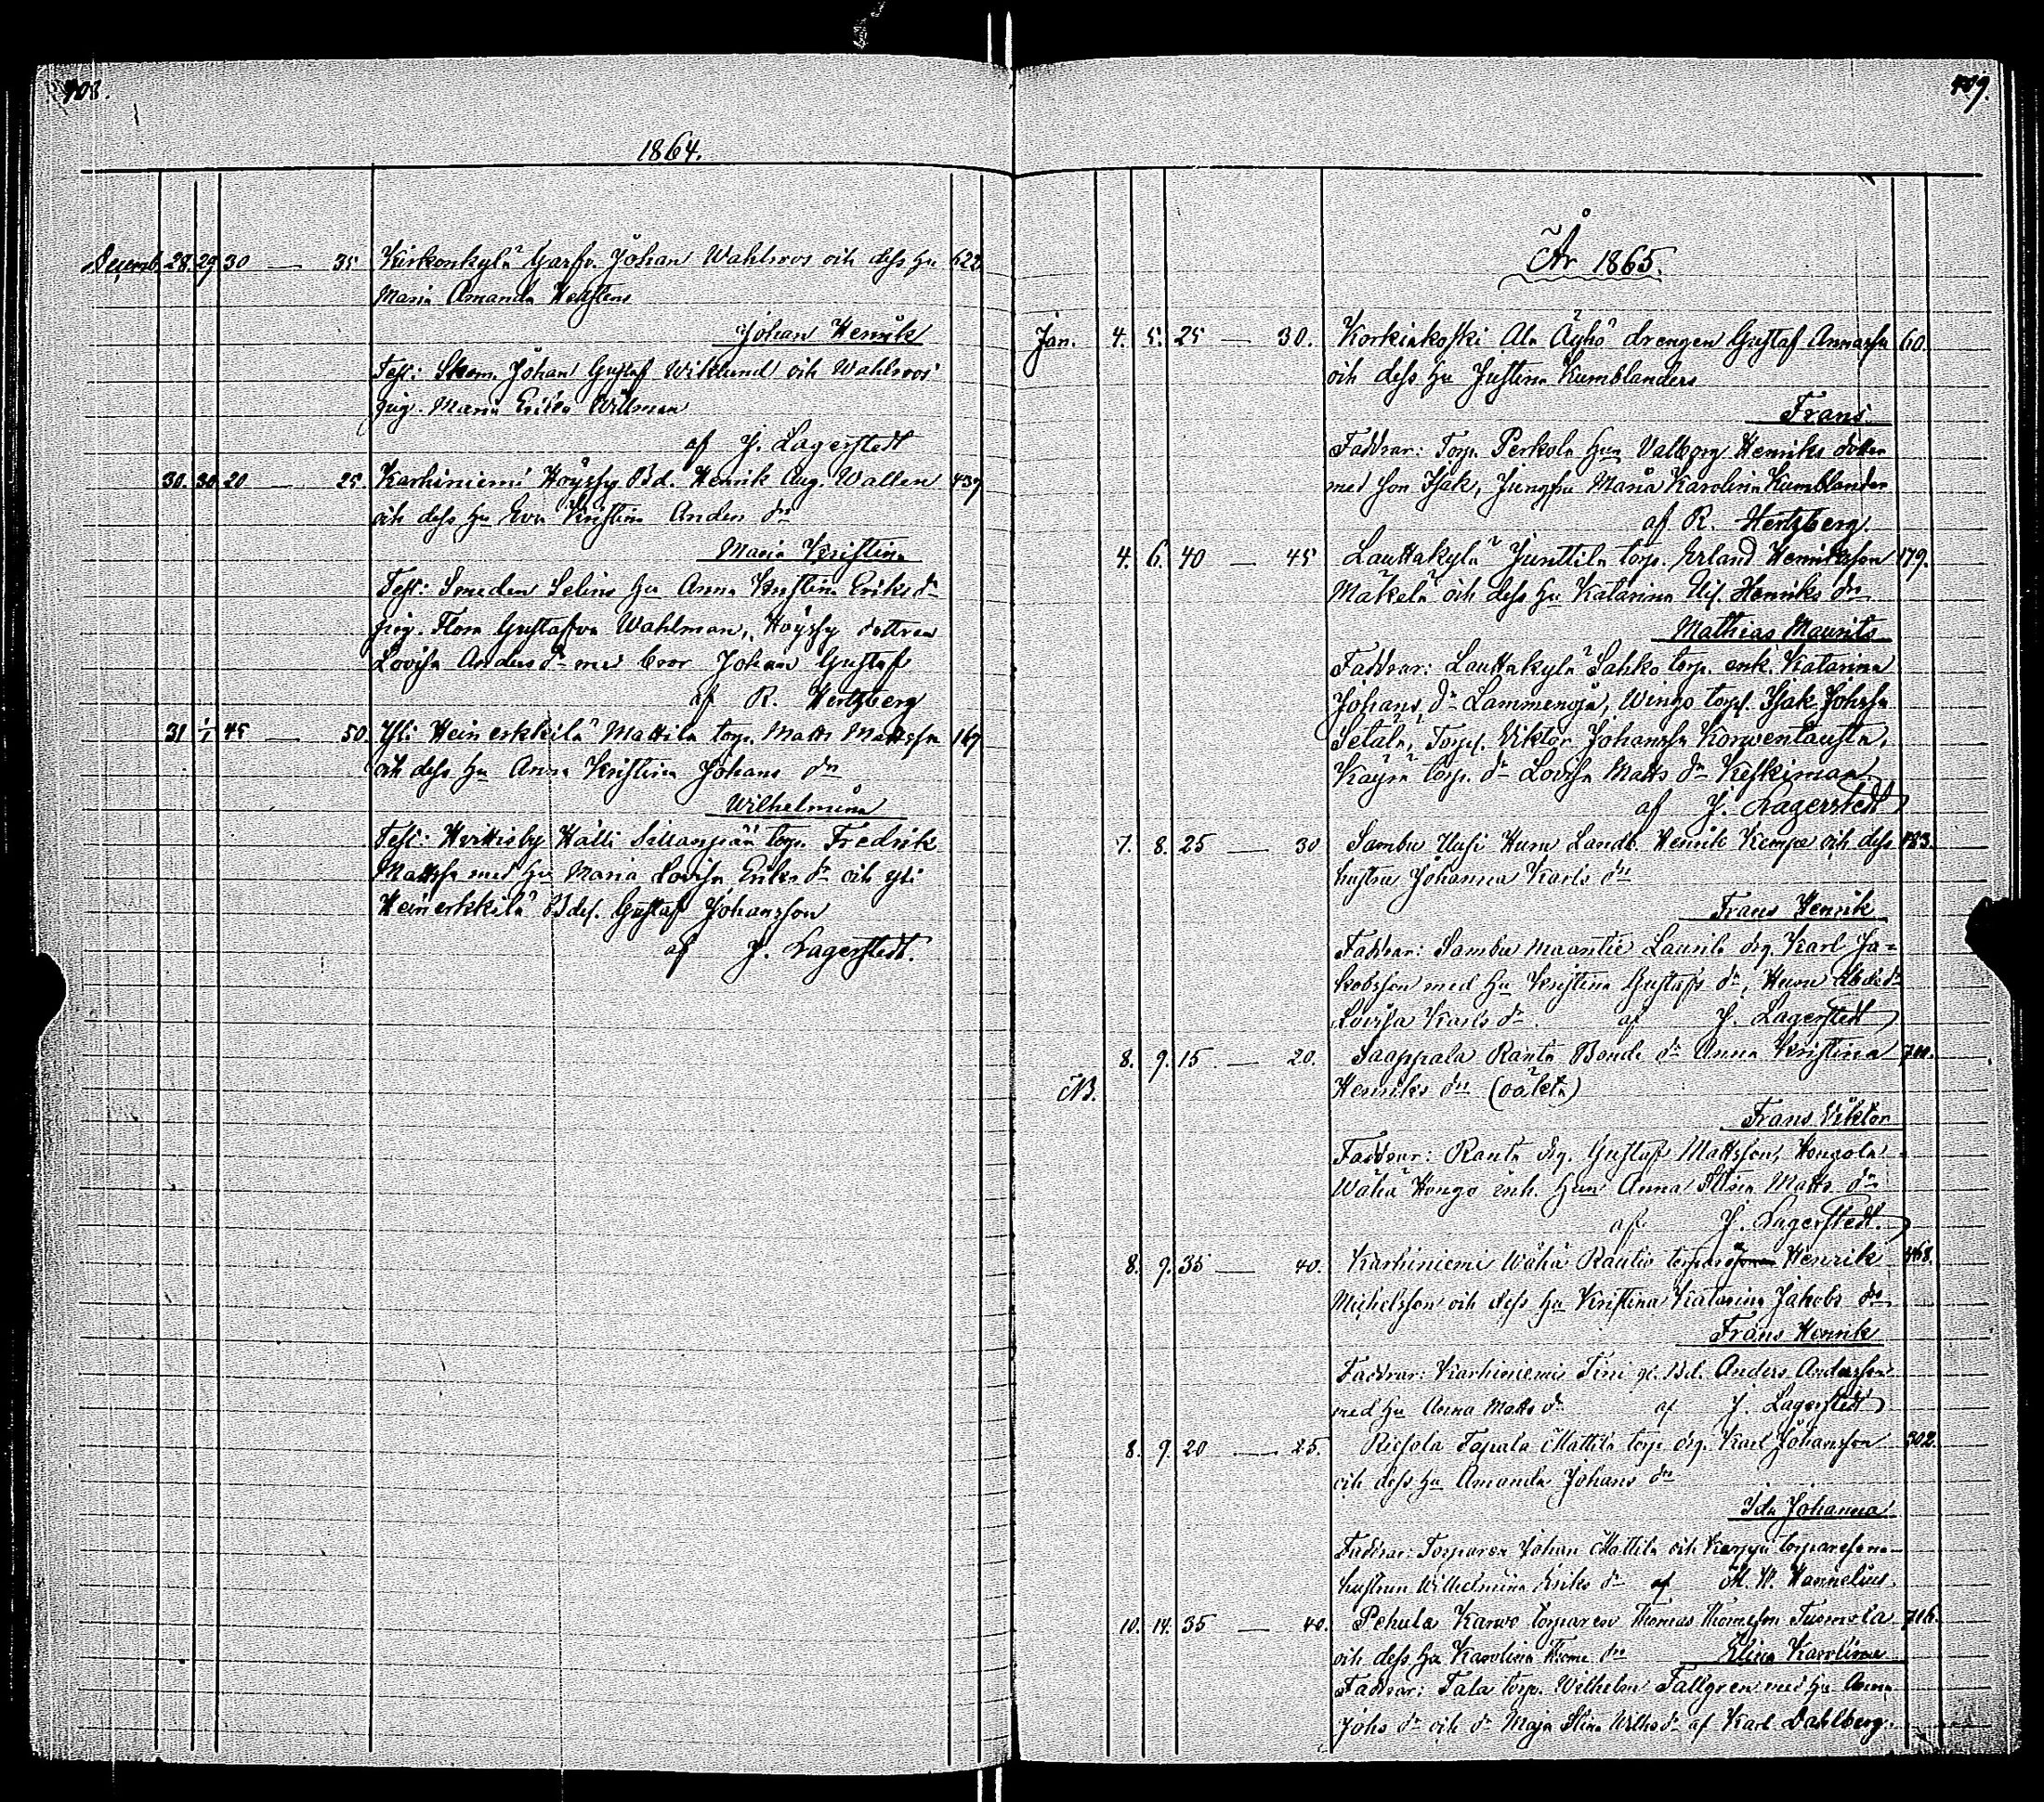 408.
1864.
Decemb. 28. 29 30 — 35 Kirkonkylä Garfv. Johan Wahlroos och dess hu 622
Maria Amanda Hellstens
Johan Henrik
Test: Skom. Johan Gustaf Wiklund och Wahlroos'
pig. Maria Erika Willman
af J. Lagerstedt
30. 30 20 — 25. Karhiniemi Höyssy Bd. Henrik Aug. Wallen 437
och dess hu Eva Kristina Anders dr
Maria Kristina
Test: Smeden Selins hu Anna Kristina Eriks dr
pig. Flora Gustafva Wahlman, Höyssy dottren
Lovisa Anders dr med bror Johan Gustaf
af R. Hertzberg
31 1/1 45 — 50. Yli Heinerkkilä Mattila torp. Matts Mattssn 167
och dess hu Anna Kristina Johans dr
Wilhelmina
Test: Huittisby Hälli Sillanpää torp. Fredrik
Mattssn med hu Maria Lovisa Eriks dr och yli
Heinerkkilä Bdes. Gustaf Johansson
af J. Lagerstedt.
409.
År 1865.
Jan. 4. 5. 25 — 30. Korkiakoski Ala Äyhö drengen Gustaf Annassn 60.
och dess hu Justina Kumblanders
Frans
Faddrar: Torp. Perkola hun Valborg Henriks dotter
med son Isak, Jungfru Maria Karolina Kumblander
af R. Hertzberg.
4. 6. 40 — 45 Lauttakylä Junttila torp. Erland Henriksson 179.
Mäkelä och dess hu Katarina Ulf. Henriks dr
Mathias Maurits
Faddrar: Lauttakylä Sahko torp. enk. Katarina
Johans dr Lammenoja, Wingo torp. Isak Johssn
Setälä, Torps. Viktor Johanssn Korwentausta,
Käyrä torp. dr Lovisa Matts dr Keskiman.
af J. Lagerstedt
7. 8. 25 — 30 Sambu Uusi Huru Landb. Henrik Kempe och dess 183.
hustru Johanna Karls dr
Frans Henrik
Faddrar: Sambu Maantie Laurila drg. Karl Ja=
kobsson med hu Kristina Gustafs dr, Huru
Lovisa Karls dr. af J. Lagerstedt
8. 9. 15 — 20. Saappala Ranta Bonde dr Anna Kristina
NB. Henriks dr (oäkta)
Frans Viktor
Faddrar: Ranta drg. Gustaf Mattsson, Hongola
Wähä Hongo inh. hun Anna Stina Matts dr
af J. Lagerstedt.
8. 9. 35 — 40. Karhiniemi Wähä Rautio Henrik 468.
Michelsson och dess hu Kristina Katarina Jakobs dr
Frans Henrik
Faddrar: Karhiniemi Fini gl. Bd. Anders Andersson
med hu Anna Matts dr af J. Lagerstedt
8. 9. 20 — 25. Riesola Tapala Mattila torp. drg. Karl Johansson 502.
och dess hu Amanda Johans dr
Ida Johanna
Faddrar: Torparen Johan Mattila och Karppa
hustrun Wilhelmina Eriks dr af M. W. Wannelius.
10. 14. 35 — 40. Pehula Karwo torparen Thomas Thomessn Tuomola 716.
och dess hu Karolina Thome dr Elina Karolina
Faddrar: Tala torp. Wilhelm Tallgren med hu Anna
Johs dr och dr Maja Stina Wilhs dr af Karl Dahlberg.